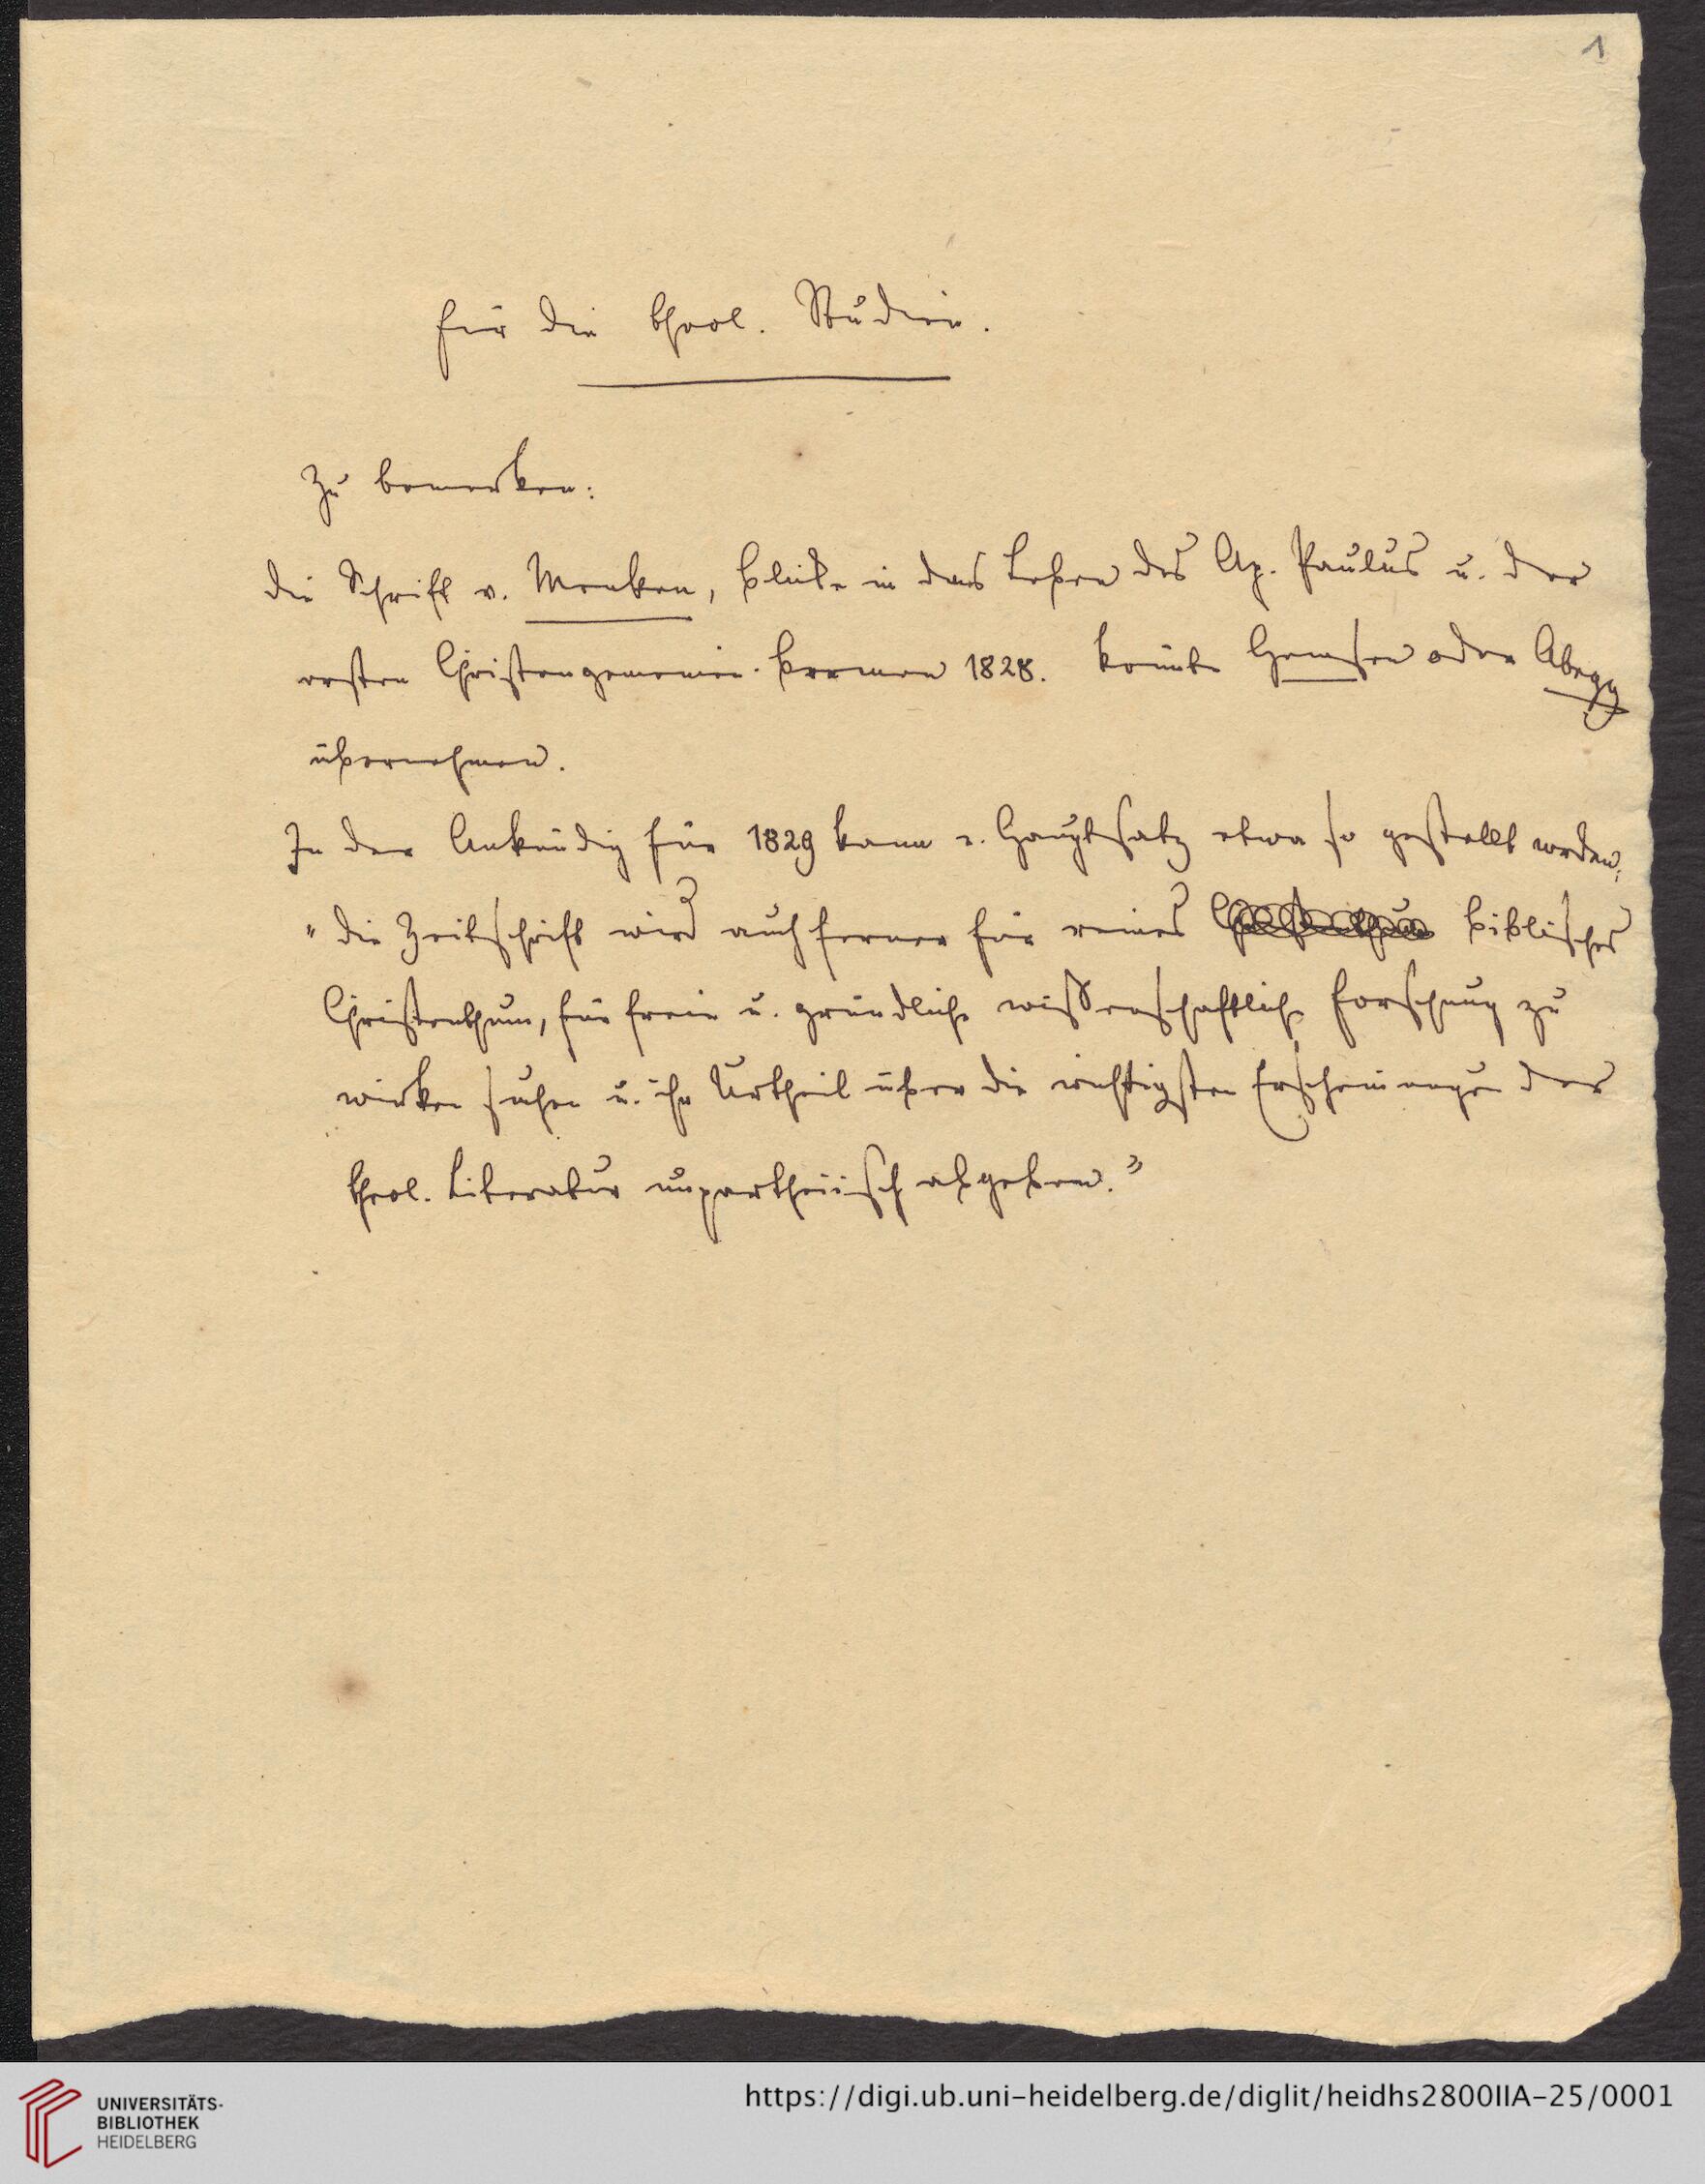 1
Für die theol. Studien.
Zu bemerken:
die Schrift v. Menken, Blicke in das Leben des Ap. Paulus u. der
ersten Christengemeinen. Bremen 1828. könnte Hemsen oder Abegg
übernehmen.
In der Ankündig für 1829 kann e. Hauptsatz etwa so gestellt werden:
"die Zeitschrift wird auch ferner für reines Christenthum biblisches
Christenthum, für freie u. gründliche wissenschaftliche Forschung zu
wirken suchen u. ihr Urtheil über die wichtigsten Erscheinungen der
theol. Literatur unpartheiisch abgeben."
UNIVERSITÄTS-
BIBLIOTHEK
HEIDELBERG
https://digi.ub.uni-heidelberg.de/diglit/heidhs2800IIA-25/0001